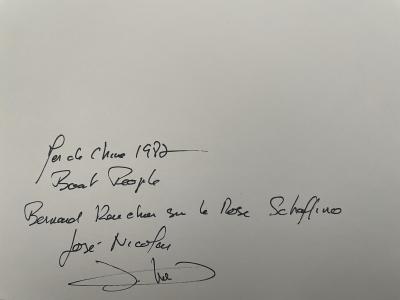 Mer de Chine 1987
Boat People
Bernard Kouchner sur le Rose Schiaffino
José Nicolas